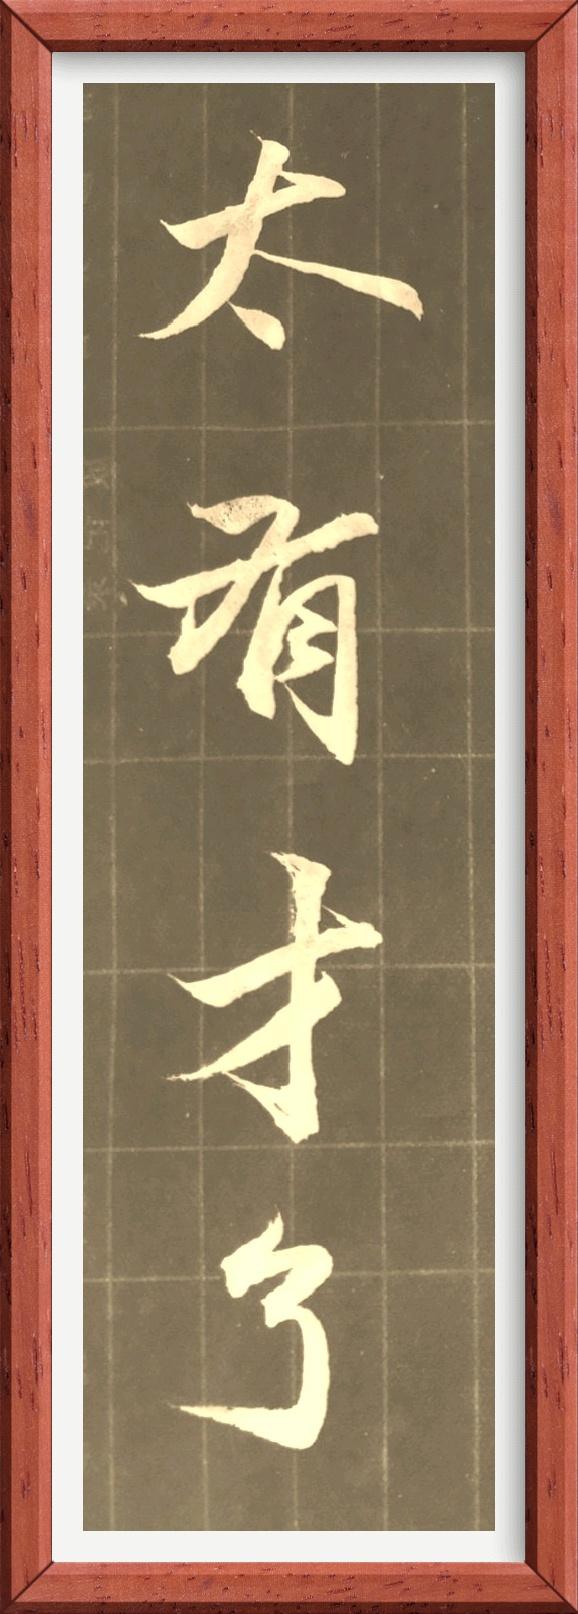 太有才了